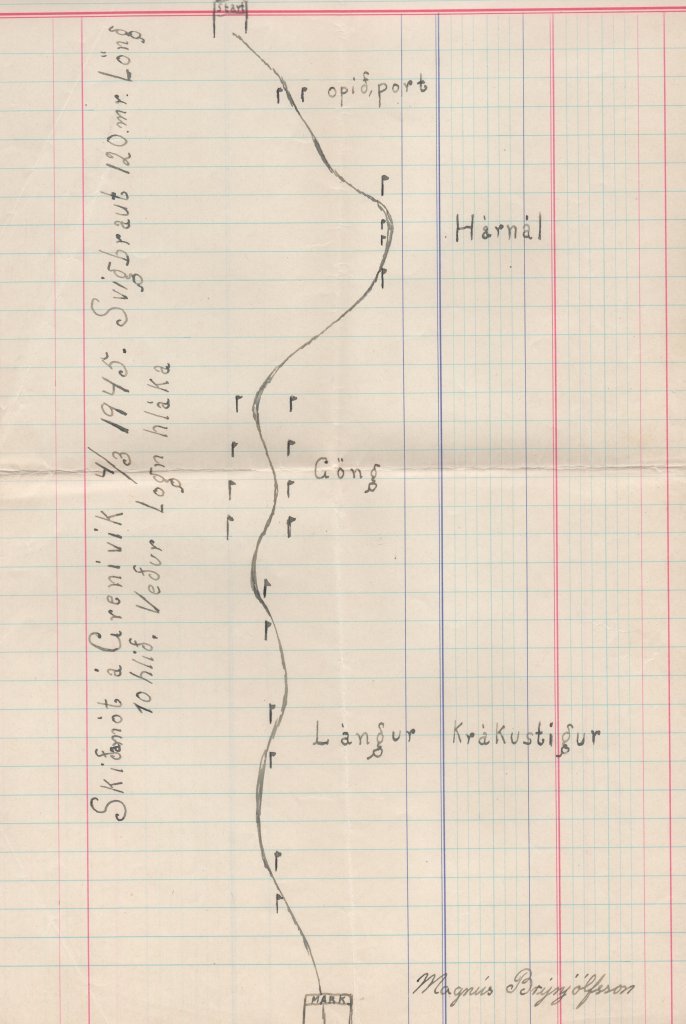 Start
opið, port
Hárnál
Göng
Lángur Krákustigur
MARK
Skiðamót á Grenivik 4/3 1945. Sviğbraut 120.mr. Löng
10 hlið. Veður Logn hláka
Magnús Brynjólfsson